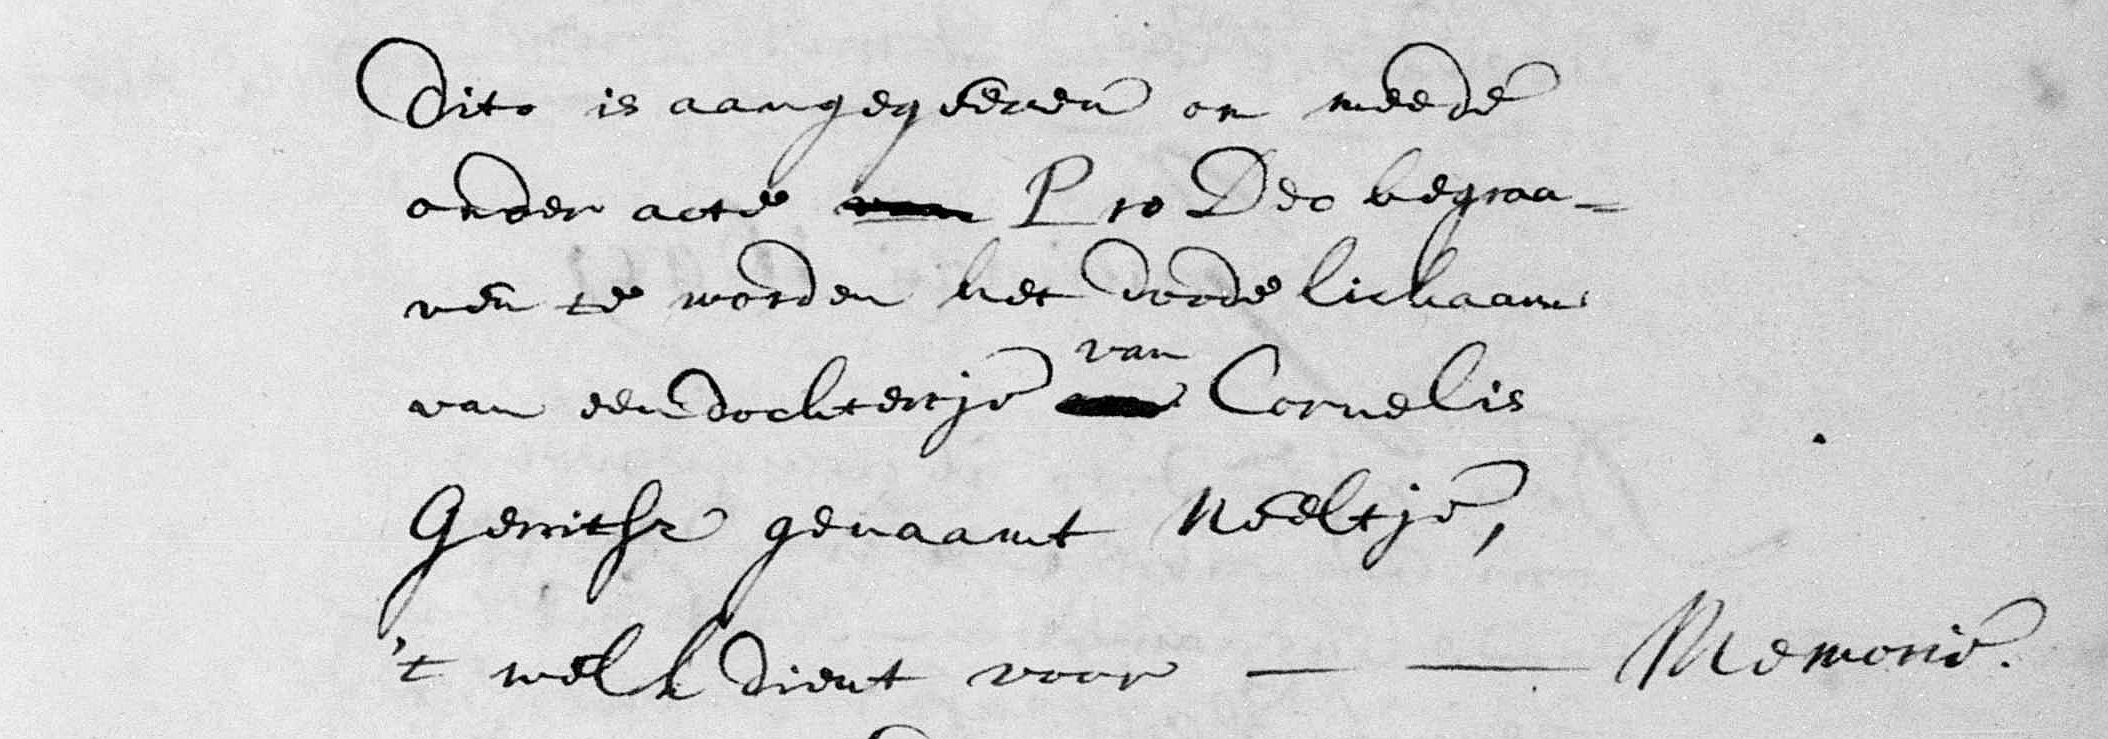 Dito is aangegeeven om meede
onder acte van Pro Deo begraa=
ven te worden het doode lichaam
van een dochtertje van Cornelis
Gerritsz genaamt Neeltje,
't welk dient voor — — Memorie.